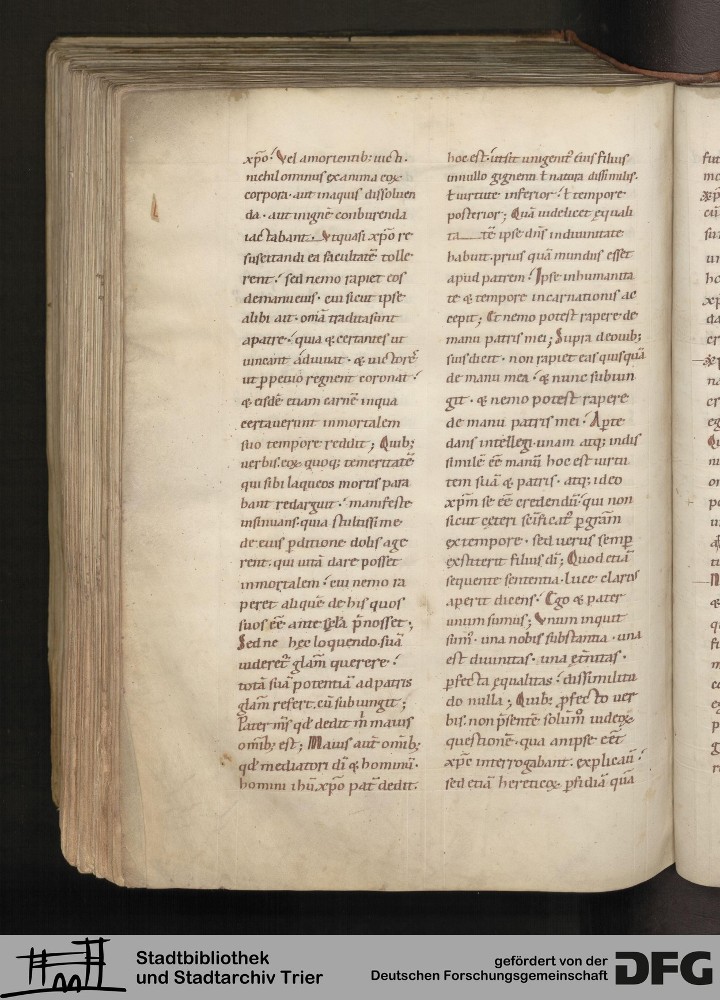 xp̄o· Vel a morientib; uicti·
nichil ominus ex anima eoꝝ
corpora· aut in aquis dissoluen
da· aut in igne conburenda
iactabant· Vt quasi xp̄o re
suscitandi ea facultatē tolle
rent· sed nemo rapiet eos
de manu eius· cui sicut ipse
alibi ait· om̄a tradita sunt
a patre· quia & certantes ut
uincant adiuuat· & uictorēs
ut ꝑpetuo regnent coronat·
& eisdē etiam carnē in qua
certauerunt inmortalem
suo tempore reddit; Quib;
uerbis eoꝝ quoq; temeritatē
qui sibi laqueos mortis para
bant redarguit· manifeste
insinuans quia stultissime
de eius ꝑditione dolis age
rent· qui uitā dare posset
inmortalem· cui nemo ra
peret aliquē de his quos
suos ēē ante scl̄a p̄nosset;
Sed ne hęc loquendo suā
uideret᷒ gl̄am querere·
totā suā potentiā ad patris
gl̄am refert· cū subiungit;
Pater m̄s qd̄ dedit m̄ maius
omīb; est; Maius aut̄ omīb;
qd̄ mediatori dī & hominū·
homini ih̄u xp̄o pat̄ dedit·
hoc est· ut sit unigenit᷒ eius filius
in nullo gignenti ł natura dissimilis·
ł uirtute inferior· ł tempore
posterior; Quā uidelicet ęquali
ta tē ipse dn̄s in diuinitate
habuit· prius quā mundus esset
apud patrem· Ipse in humanita
te & tempore incarnationis ac
cepit; Et nemo potest rapere de
manu patris mei; Supra de ouib;
suis dicit· non rapiet eas quisquā
de manu mea· & nunc subiun
git· & nemo potest rapere
de manu patris mei· Aperte
dans intellegi· unam atq; indis
similē ēē manū hoc est uirtu
tem suā & patris· atq; ideo
xp̄m se ēē credendū· qui non
sicut ceteri sc̄ificat᷒ ꝑ gr̄am
ex tempore· sed uerus semꝑ
exstiterit filius dī; Quod etiā
sequente sententia· luce clarius
aperit dicens· Ego & pater
unum sumus; Vnum inquit
sum᷒· una nobis substantia· una
est diuinitas· una ęt̄nitas·
ꝑfecta ęqualitas· dissimilitu
do nulla; Quib; ꝓfecto uer
bis· non p̄sentē solum᷒ iudeoꝝ
questionē· qua an ipse ēēt
xp̄c interrogabant· explicaū·
sed etiā hereticoꝝ ꝑfidiā quā
Stadtbibliothek
und Stadtarchiv Trier
gefördert von der
Deutschen Forschungsgemeinschaft
DFG